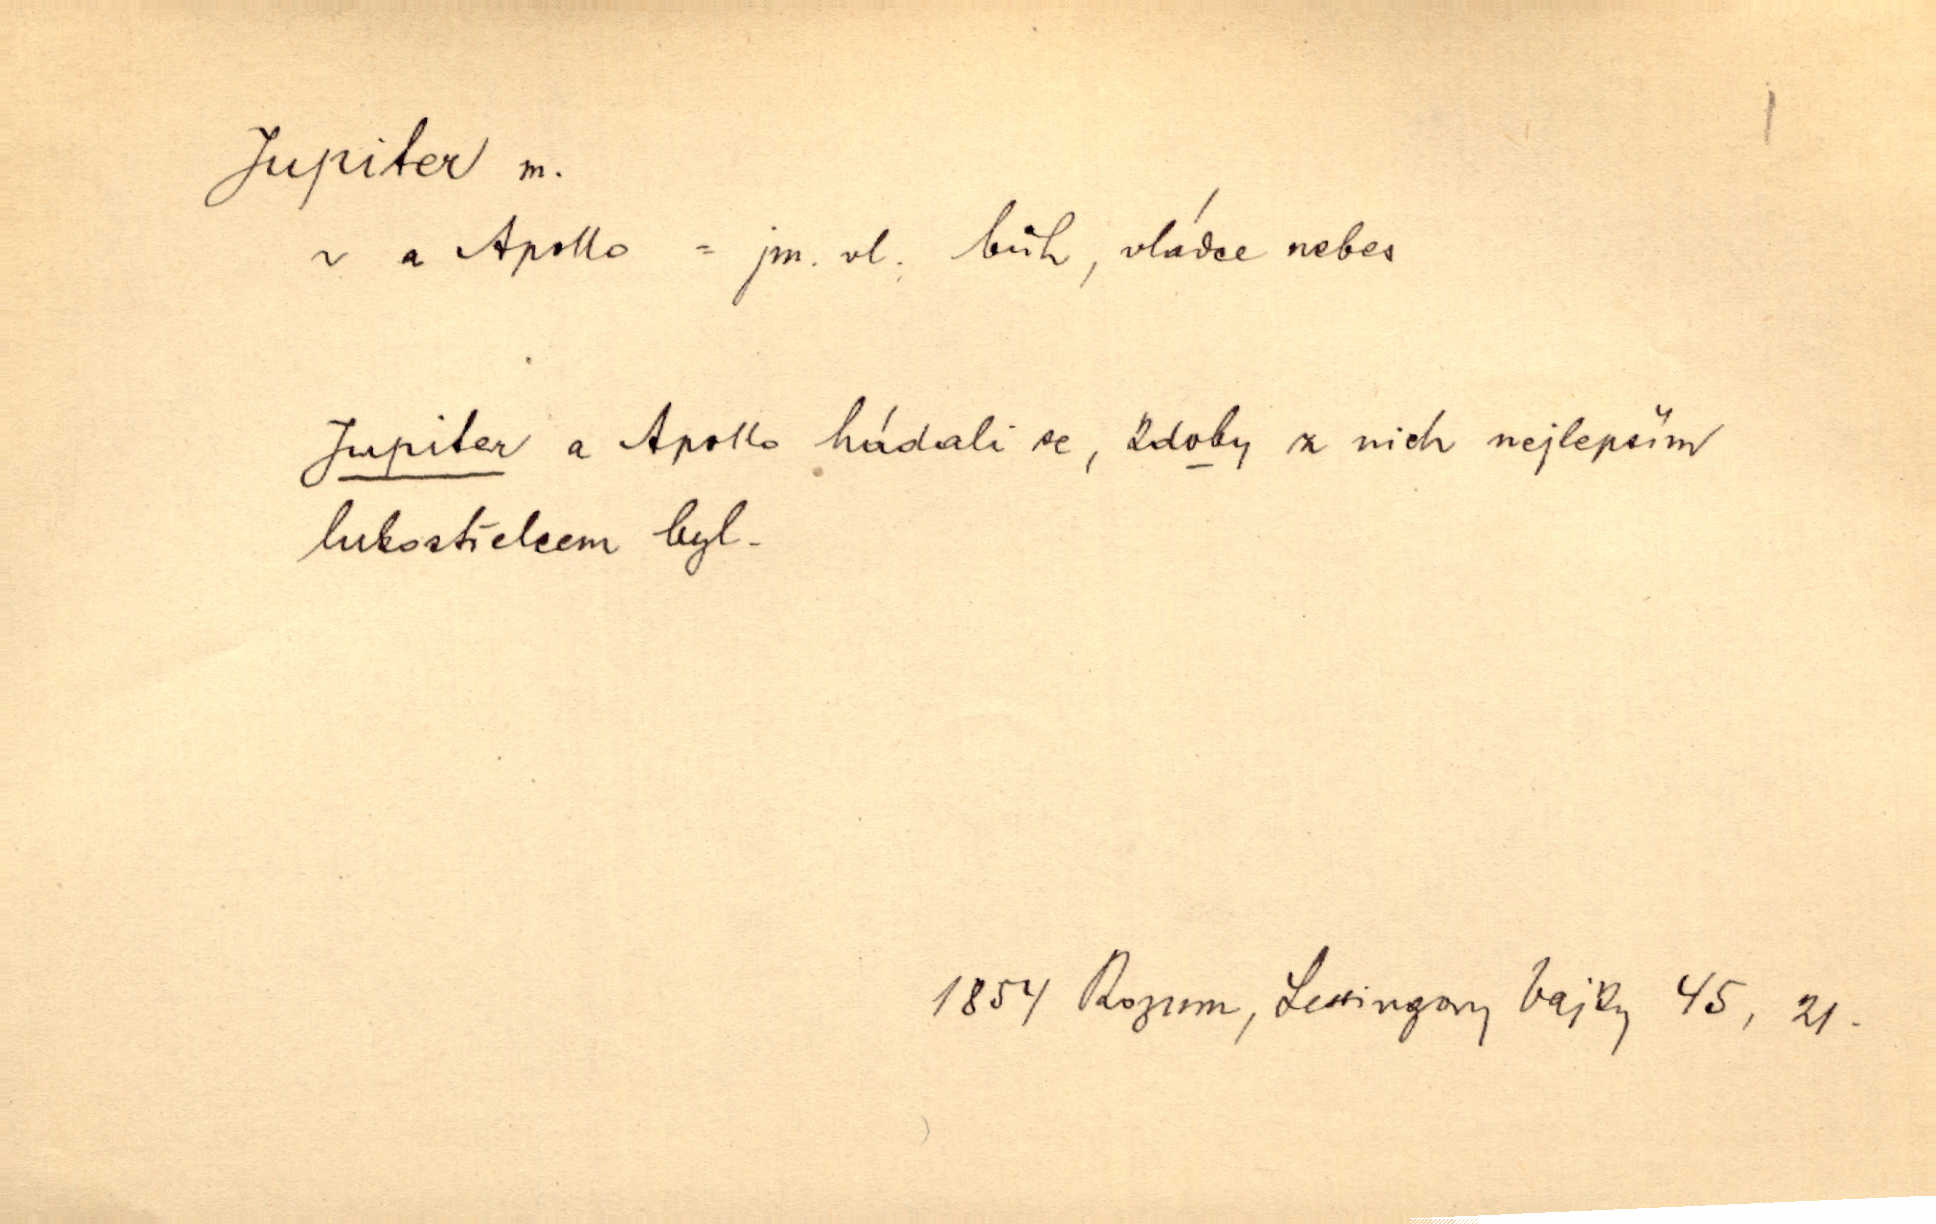 Jupiter m.
~ a Apollo = jm. vl. bůh, vládce nebes
Jupiter a Apollo hádali se, kdoby z nich nejlepším
lukostřelcem byl.
1854 Rozum, Lessingovy bajky 45, 21.